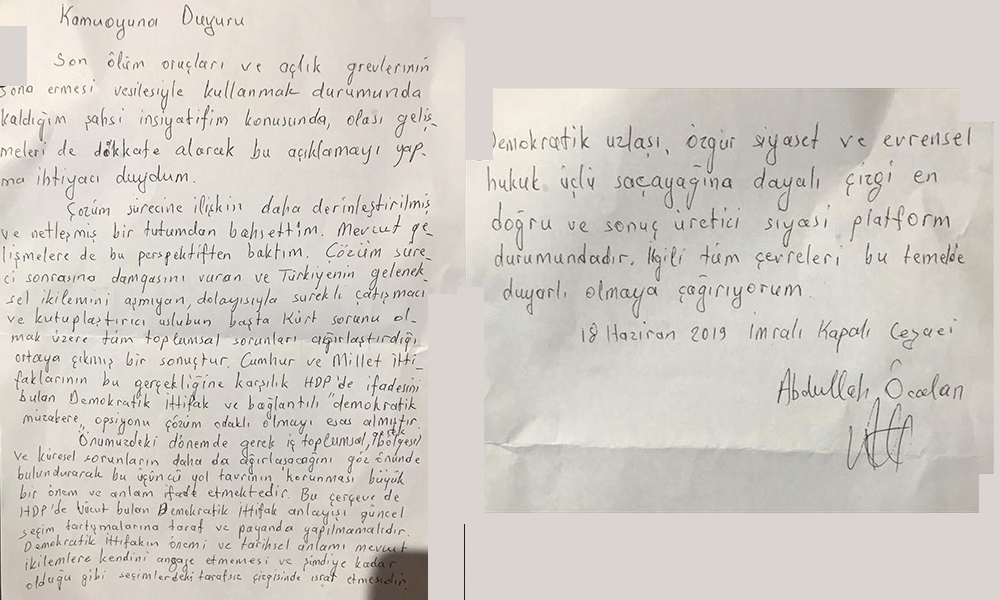 Kamuoyuna Duyuru
Son ölüm oruçları ve açlık grevlerinin
sona ermesi vesilesiyle kullanmak durumunda
kaldığım şahsi insiyatifim konusunda, olası geliş-
meleri de dikkate alarak bu açıklamayı yap-
ma ihtiyacı duydum.
Çözüm sürecine ilişkin daha derinleştirilmiş
ve netleşmiş bir tutumdan bahsettim. Mevcut ge-
lişmelere de bu perspektiften baktım. Çözüm süre-
ci sonrasına damgasını vuran ve Türkiyenin gelenek-
sel ikilemini aşmıyan, dolayısıyla sürekli çatışmacı
ve kutuplaştırıcı uslubun başta Kürt sorunu ol-
mak üzere tüm toplumsal sorunları ağırlaştırdığı
ortaya çıkmış bir sonuçtur. Cumhur ve Millet itti-
faklarının bu gerçekliğine karşılık HDP'de ifadesini
bulan Demokratik İttifak ve bağlantılı "demokratik
müzakere" opsiyonu çözüm odaklı olmayı esas almıştır.
Önümüzdeki dönemde gerek iç toplumsal, bölgesel
ve küresel sorunların daha da ağırlaşacağını göz önünde
bulundurarak bu üçüncü yol tavrının korunması büyük
bir önem ve anlam ifade etmektedir. Bu çerçeve de
HDP'de vücut bulan Demokratik İttifak anlayışı güncel
seçim tartışmalarına taraf ve payanda yapılmamalıdır.
Demokratik ittifakın önemi ve tarihsel anlamı mevcut
ikilemlere kendini angaje etmemesi ve şimdiye kadar
olduğu gibi seçimlerdeki tarafsız çizgisinde ısrar etmesidir.
Demokratik uzlaşı, özgür siyaset ve evrensel
hukuk üçlü saçayağına dayalı çizgi en
doğru ve sonuç üretici siyasi platform
durumundadır. İlgili tüm çevreleri bu temelde
duyarlı olmaya çağırıyorum.
18 Haziran 2019 İmralı Kapalı Cezaevi
Abdullah Öcalan